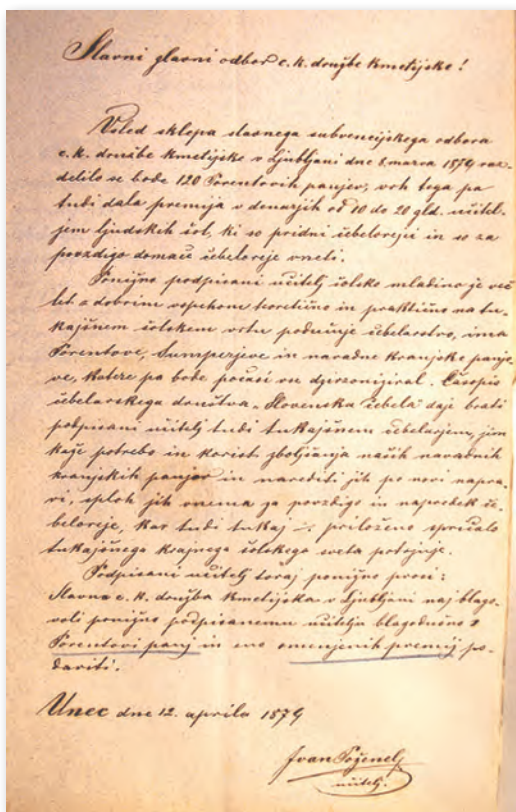 Slavni glavni odbor c. k. družbe kmetijske!
Vsled sklepa slavnega subvencijskega odbora
c. k. družbe kmetijske v Ljubljani dne 8. marca 1879 raz-
delilo se bode 120 Porentovih panjev, vrh tega pa
tudi dala premija v denarjih od 10 do 20 gld. učitel-
jem ljudskih šol, ki so pridni čebelorejci in so za
povzdigo domače čebeloreje vneti.
Ponižno podpisani učitelj šolsko mladino je več
let z dobrim vspehom teoretično in praktično na tu-
kajšnem šolskem vrtu podučuje čebelarstvo, ima
Porentove, Šumperjeve in navadne kranjske panje-
ve, katere pa bode počasi vse dzirzoniziral. Časopis
čebelarskega društva „Slovenska čebela" daje brati
podpisani učitelj tudi tukajšnem čebelarjem, jim
kaže potrebo in korist zboljšanja naših navadnih
kranjskih panjov in narediti jih po novi napra-
vi, sploh jih vnema za povzdigo in napredek če-
beloreje, kar tudi tukaj ÷ priloženo spričalo
tukajšnega krajnega šolskega sveta potrjuje.
Podpisani učitelj toraj ponižno prosi:
Slavna c. k. družba kmetijska v Ljubljani naj blago-
voli ponižno podpisanemu učitelju blagodušno
Porentovi panj in eno omenjenih premij po-
dariti.
Unec dne 12. aprila 1879
Ivan Poženel
učitelj.